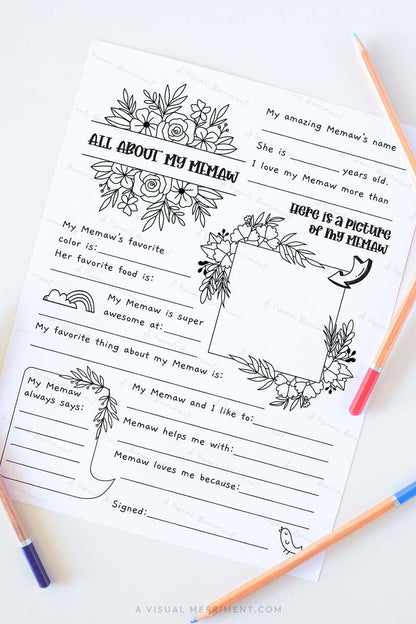 ALL ABOUT MY MEMAW
My amazing Memaw's name
She is ________ years old.
I love my Memaw more than
Here is a picture
of my MEMAW
My Memaw's favorite
color is:
Her favorite food is:
My Memaw is super
awesome at:
My favorite thing about my Memaw is:
My Memaw
always says:
My Memaw and I like to:
Memaw helps me with:
Memaw loves me because:
Signed:
A VISUAL MERRIMENT.COM